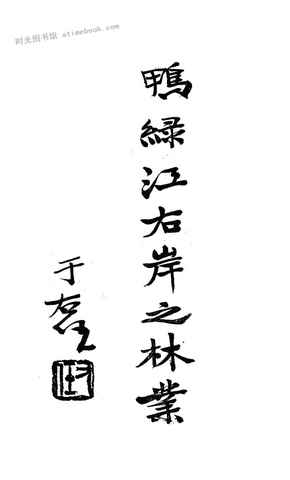 时光图书馆 atimebook.com
鴨緑江右岸之林業
于